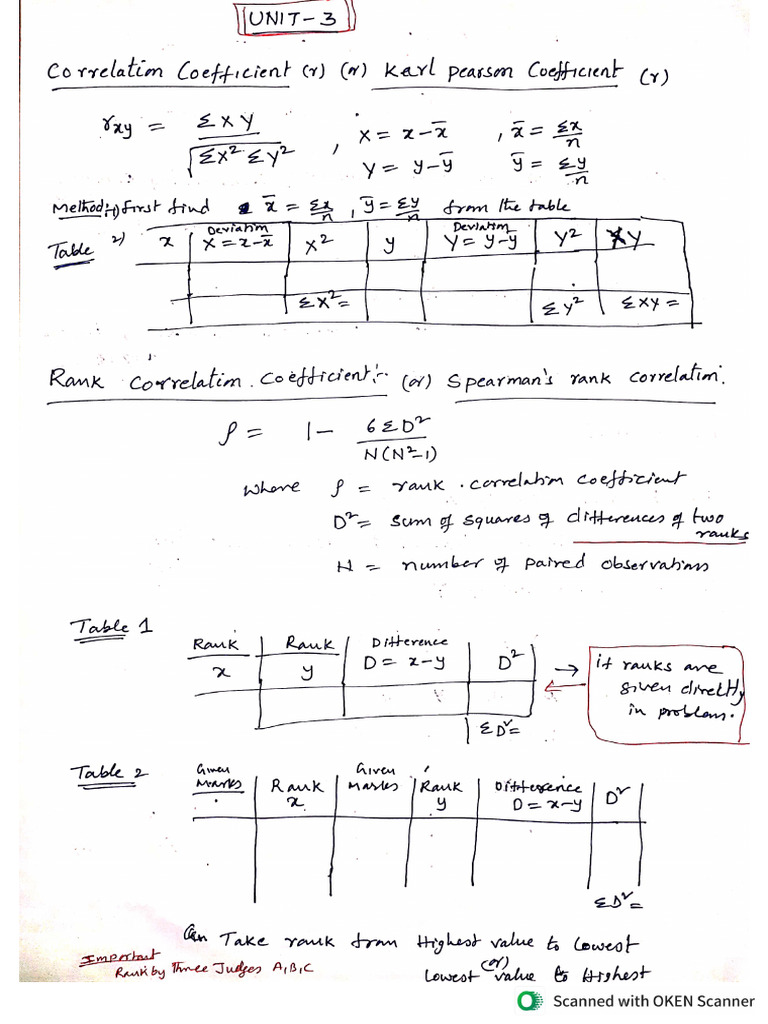 UNIT-3
Correlation Coefficient (r) (or) Karl pearson Coefficient (r)
rxy = ΣXY / √ΣX² ΣY² , X = x-x̄ , x̄ = Σx/n
Y = y-ȳ ȳ = Σy/n
Method:- 1) first find x̄ = Σx/n , ȳ = Σy/n from the table
Table 2) x | Deviation X = x-x̄ | X² | y | Deviation Y = y-y | Y² | XY
ΣX²= ΣY² ΣXY=
Rank Correlation. Coefficient:- (or) Spearman's rank correlation.
ρ = 1- 6ΣD² / N(N²-1)
where ρ = rank correlation coefficient
D² = sum of squares of differences of two
ranks
N = number of paired observations
Table 1
Rank x | Rank y | Difference D = x-y | D²
ΣD²=
→ if ranks are
given directly
in problem.
Table 2
Given Marks | Rank x | Given Marks | Rank y | Difference D = x-y | D²
ΣD²=
Can Take rank from Highest value to Lowest
(or)
Lowest value to Highest
Important
Rank by Three Judges A,B,C
Scanned with OKEN Scanner